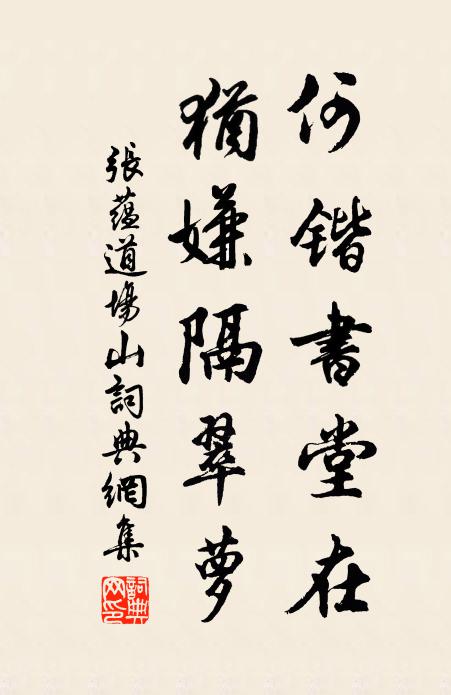 何锴書堂在
猶嫌隔翠夢
張蘊道場山詞典網集
詞典网印